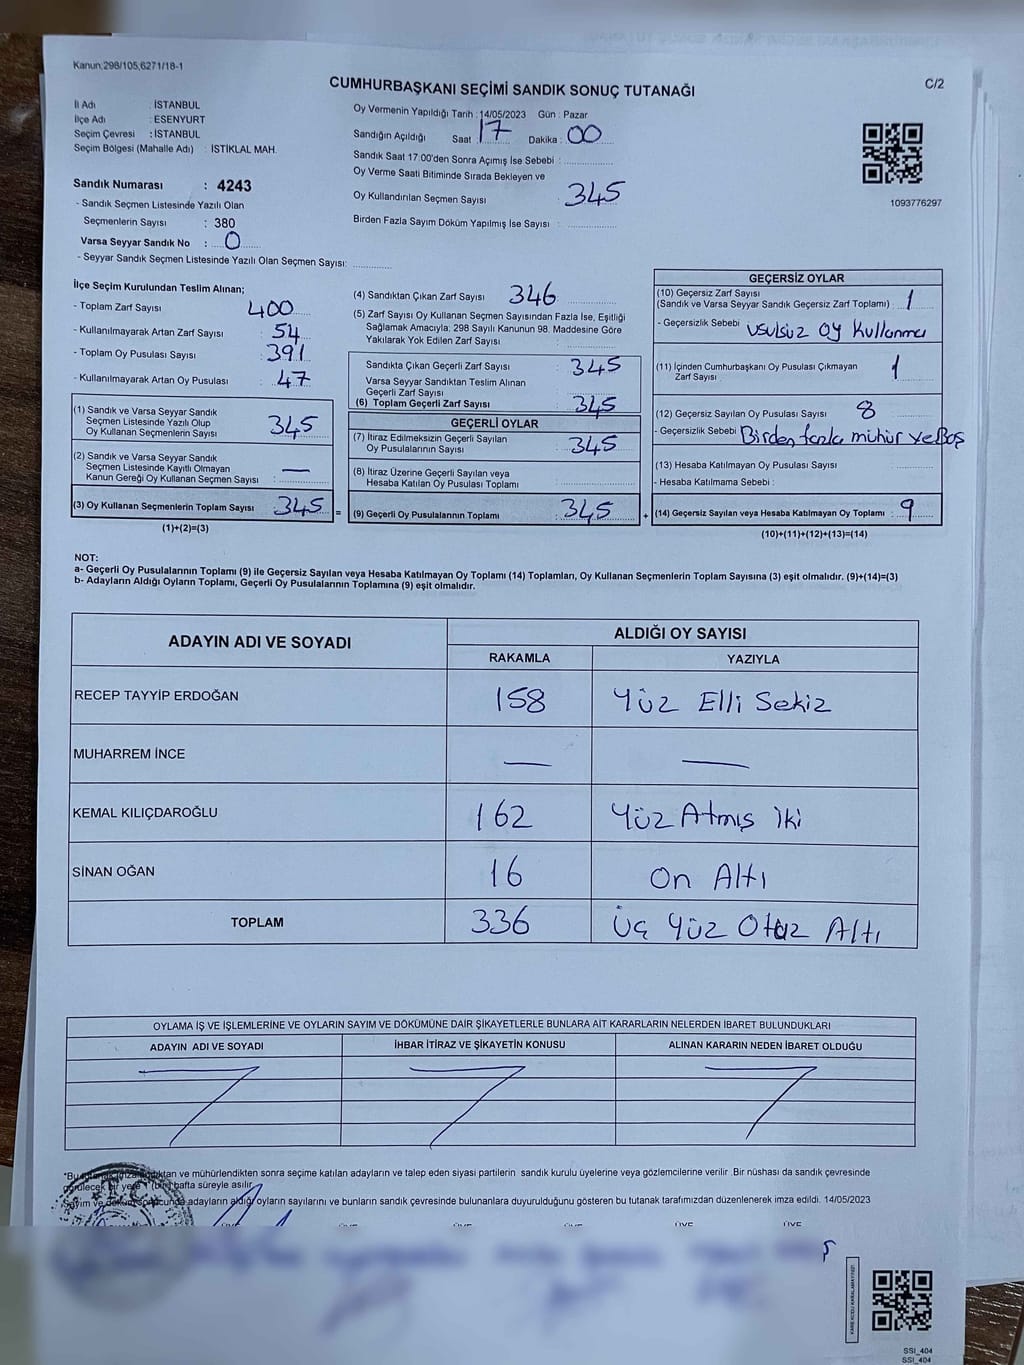 Kanun:298/105,6271/18-1
CUMHURBAŞKANI SEÇİMİ SANDIK SONUÇ TUTANAĞI
C/2
İl Adı : İSTANBUL
İlçe Adı : ESENYURT
Seçim Çevresi : İSTANBUL
Seçim Bölgesi (Mahalle Adı) : İSTİKLAL MAH.
Sandık Numarası : 4243
- Sandık Seçmen Listesinde Yazılı Olan
Seçmenlerin Sayısı : 380
Varsa Seyyar Sandık No : 0
- Seyyar Sandık Seçmen Listesinde Yazılı Olan Seçmen Sayısı:
Oy Vermenin Yapıldığı Tarih : 14/05/2023 Gün : Pazar
Sandığın Açıldığı Saat : 17 Dakika : 00
Sandık Saat 17:00'den Sonra Açımış İse Sebebi :
Oy Verme Saati Bitiminde Sırada Bekleyen ve
Oy Kullandırılan Seçmen Sayısı : 345
Birden Fazla Sayım Döküm Yapılmış İse Sayısı :
1093776297
İlçe Seçim Kurulundan Teslim Alınan;
- Toplam Zarf Sayısı : 400
- Kullanılmayarak Artan Zarf Sayısı : 54
- Toplam Oy Pusulası Sayısı : 391
- Kullanılmayarak Artan Oy Pusulası : 47
(1) Sandık ve Varsa Seyyar Sandık
Seçmen Listesinde Yazılı Olup
Oy Kullanan Seçmenlerin Sayısı : 345
(2) Sandık ve Varsa Seyyar Sandık
Seçmen Listesinde Kayıtlı Olmayan
Kanun Gereği Oy Kullanan Seçmen Sayısı : —
(3) Oy Kullanan Seçmenlerin Toplam Sayısı : 345 =
(1)+(2)=(3)
(4) Sandıktan Çıkan Zarf Sayısı : 346
(5) Zarf Sayısı Oy Kullanan Seçmen Sayısından Fazla İse, Eşitliği
Sağlamak Amacıyla; 298 Sayılı Kanunun 98. Maddesine Göre
Yakılarak Yok Edilen Zarf Sayısı :
Sandıkta Çıkan Geçerli Zarf Sayısı : 345
Varsa Seyyar Sandıktan Teslim Alınan
Geçerli Zarf Sayısı :
(6) Toplam Geçerli Zarf Sayısı : 345
GEÇERLİ OYLAR
(7) İtiraz Edilmeksizin Geçerli Sayılan
Oy Pusulalarının Sayısı : 345
(8) İtiraz Üzerine Geçerli Sayılan veya
Hesaba Katılan Oy Pusulası Toplamı :
(9) Geçerli Oy Pusulalarının Toplamı : 345 +
GEÇERSİZ OYLAR
(10) Geçersiz Zarf Sayısı
(Sandık ve Varsa Seyyar Sandık Geçersiz Zarf Toplamı) : 1
- Geçersizlik Sebebi : usulsüz oy kullanma
(11) İçinden Cumhurbaşkanı Oy Pusulası Çıkmayan
Zarf Sayısı : 1
(12) Geçersiz Sayılan Oy Pusulası Sayısı : 8
- Geçersizlik Sebebi : Birden fazla mühür ve Boş
(13) Hesaba Katılmayan Oy Pusulası Sayısı :
- Hesaba Katılmama Sebebi :
(14) Geçersiz Sayılan veya Hesaba Katılmayan Oy Toplamı : 9
(10)+(11)+(12)+(13)=(14)
NOT:
a- Geçerli Oy Pusulalarının Toplamı (9) ile Geçersiz Sayılan veya Hesaba Katılmayan Oy Toplamı (14) Toplamları, Oy Kullanan Seçmenlerin Toplam Sayısına (3) eşit olmalıdır. (9)+(14)=(3)
b- Adayların Aldığı Oyların Toplamı, Geçerli Oy Pusulalarının Toplamına (9) eşit olmalıdır.
ADAYIN ADI VE SOYADI
ALDIĞI OY SAYISI
RAKAMLA YAZIYLA
RECEP TAYYİP ERDOĞAN 158 Yüz Elli Sekiz
MUHARREM İNCE — —
KEMAL KILIÇDAROĞLU 162 Yüz Atmış iki
SİNAN OĞAN 16 On Altı
TOPLAM 336 Üç Yüz Otuz Altı
OYLAMA İŞ VE İŞLEMLERİNE VE OYLARIN SAYIM VE DÖKÜMÜNE DAİR ŞİKAYETLERLE BUNLARA AİT KARARLARIN NELERDEN İBARET BULUNDUKLARI
ADAYIN ADI VE SOYADI İHBAR İTİRAZ VE ŞİKAYETİN KONUSU ALINAN KARARIN NEDEN İBARET OLDUĞU
ve mühürlendikten sonra seçime katılan adayların ve talep eden siyasi partilerin sandık kurulu üyelerine veya gözlemcilerine verilir .Bir nüshası da sandık çevresinde
hafta süreyle asılır.
adayların aldığı oyların sayılarını ve bunların sandık çevresinde bulunanlara duyurulduğunu gösteren bu tutanak tarafımızdan düzenlenerek imza edildi. 14/05/2023
ÜYE ÜYE ÜYE ÜYE ÜYE
SSİ_404
SSİ_404